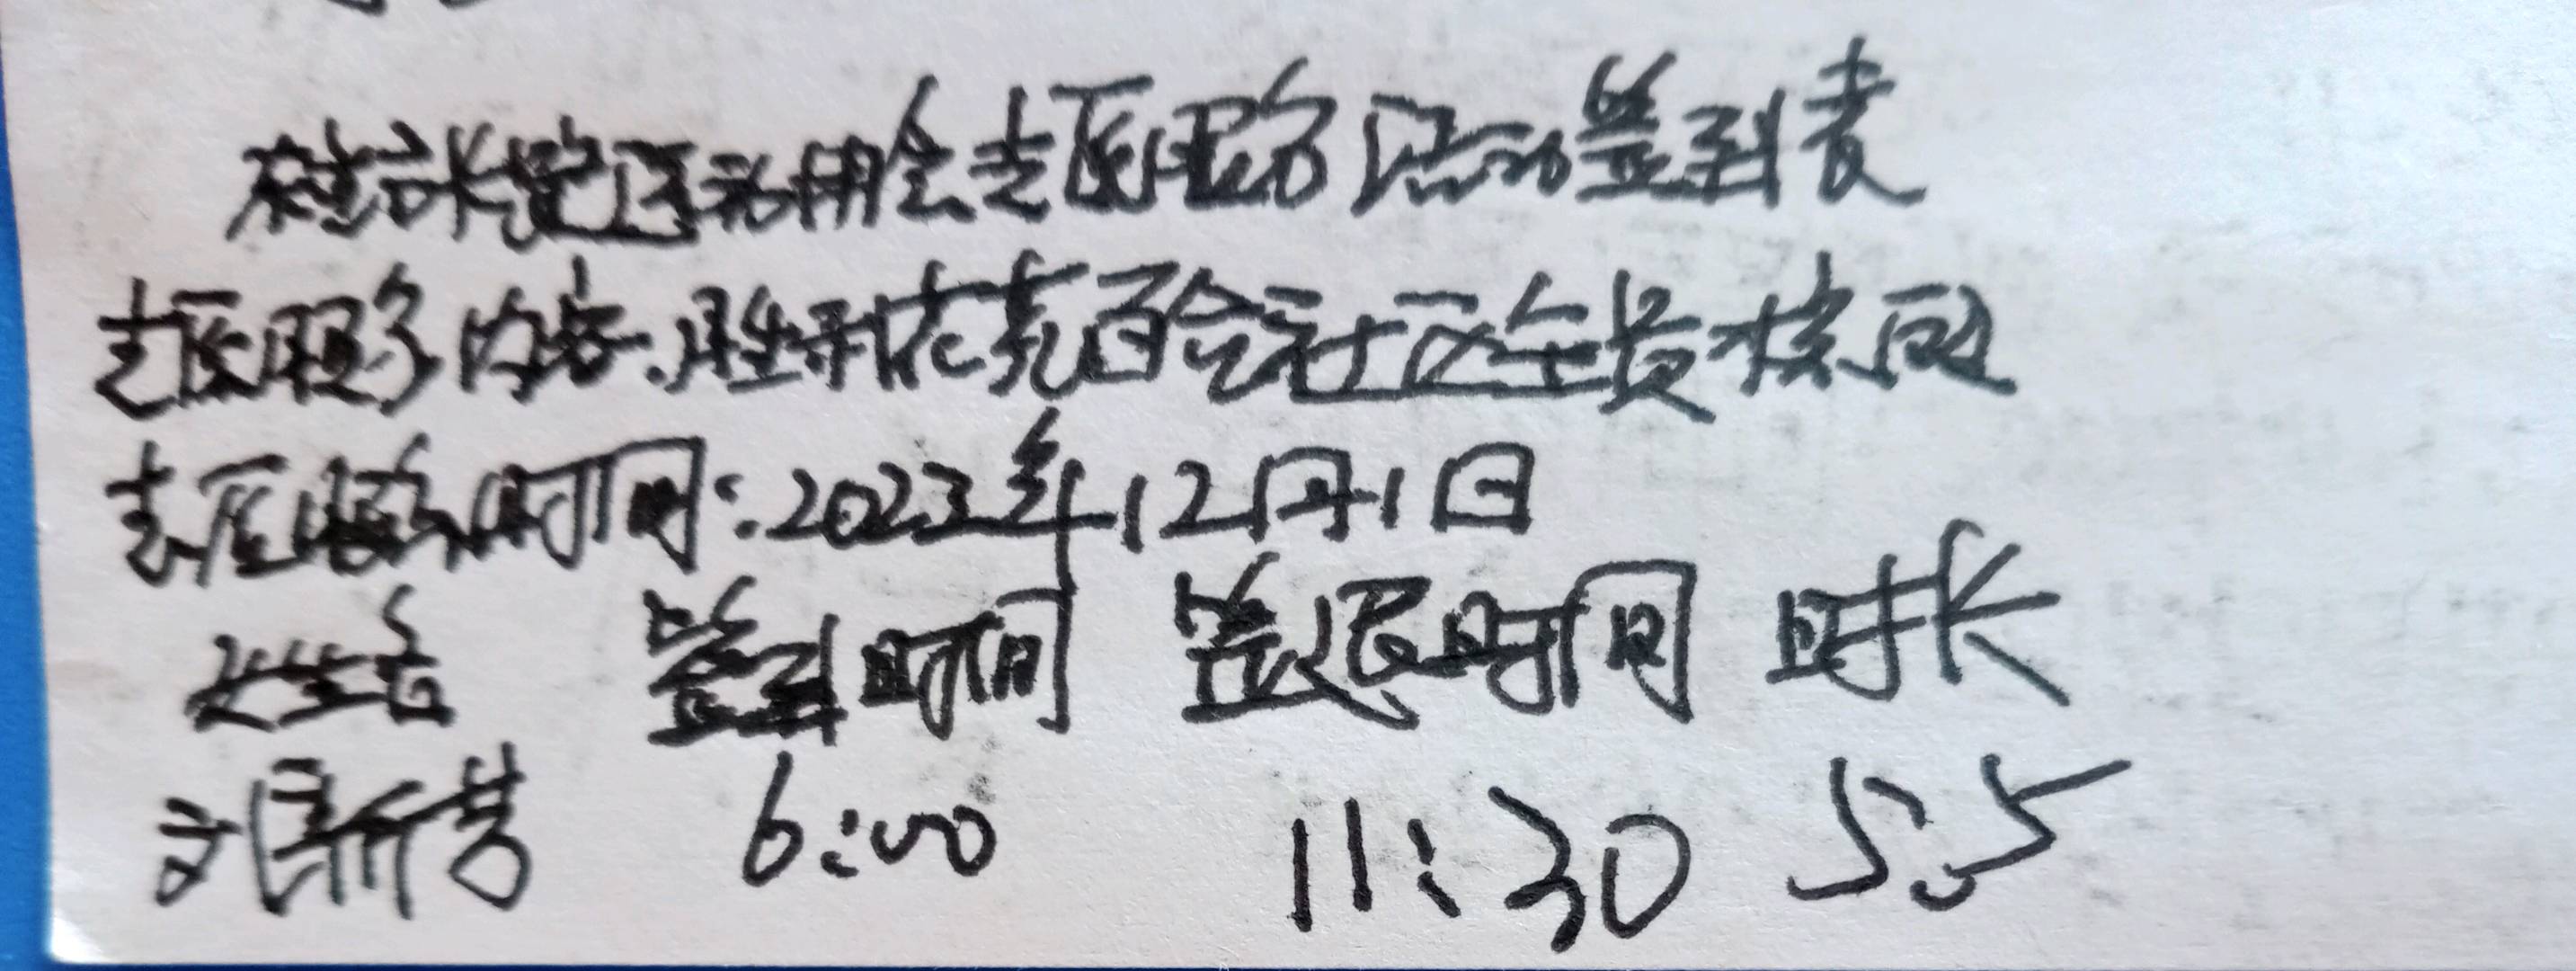 志愿服务活动签到表
志愿服务内容:胜利花苑百合社区全员核酸
志愿服务时间:2023年12月1日
姓名 签到时间 签退时间 时长
刘 6:00 11:30 5.5